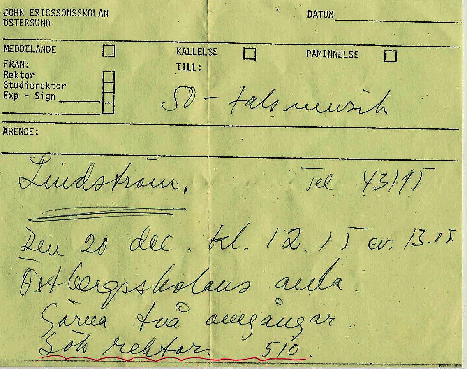 JOHN ERICSSONSSKOLAN
ÖSTERSUND
DATUM
MEDDELANDE
KALLELSE
PÅMINNELSE
FRÅN:
TILL:
Rektor
Studierektor
Exp - Sign
50-talsmusik
ÄRENDE:
Lindström. Tel 43195
Den 20 dec. kl. 12.15 ev. 13.15
Östbergsskolans aula.
Gärna två omgångar.
Sök rektor 510.